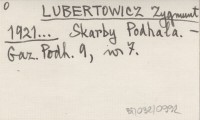 0
LUBERTOWICZ Zygmunt
1921... Skarby Podhala. –
Gaz. Podh. 9, nr 7.